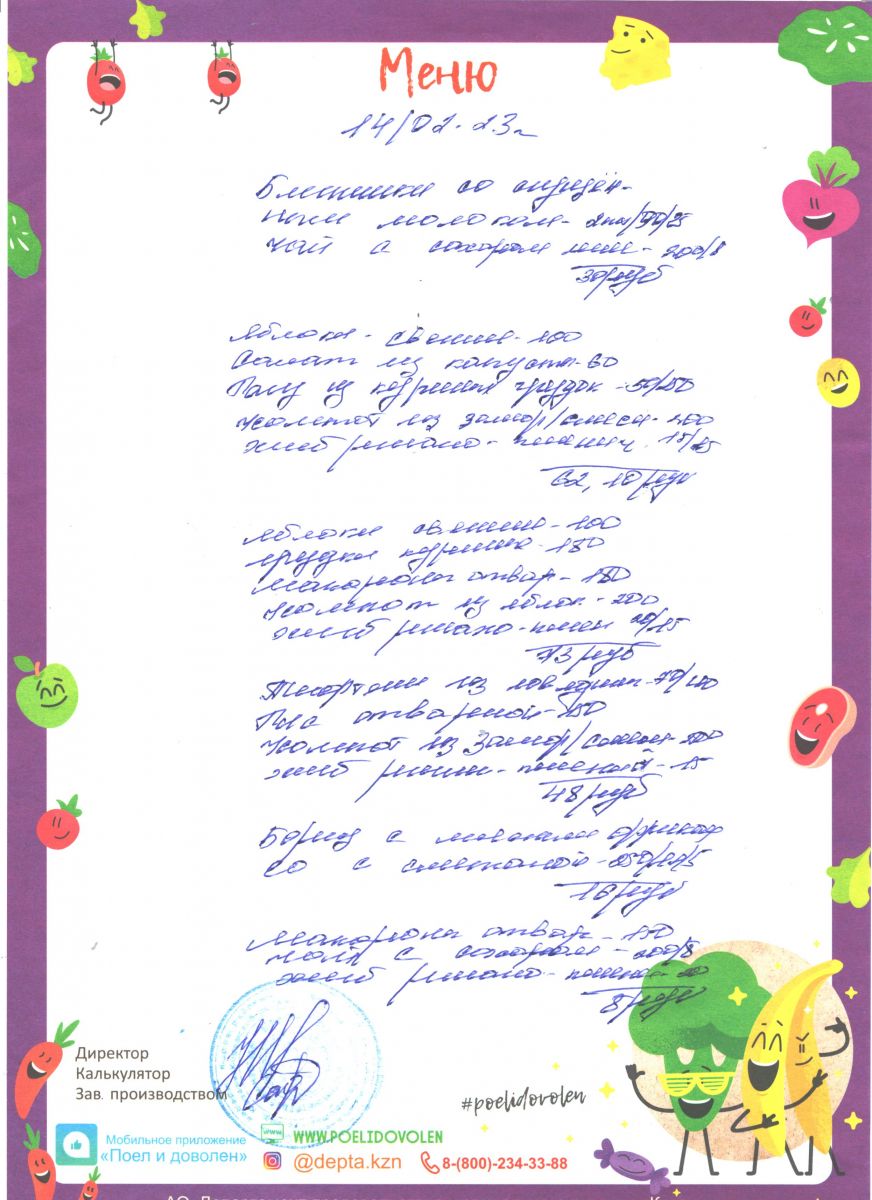 Меню
14/02-23г
Блинчики со сгущён-
ным молоком - 2шт/50/25
Чай с сахаром - 200/8
30руб
Яблоки - свежие - 100
Салат из капусты - 60
Рагу из куриных грудок - 50/150
Компот из замор/смеси - 200
Хлеб ржано - пшенич. 15/15
62,10руб
Яблоки свежие - 100
грудки куриные -
Макароны отвар -
Компот из яблок - 200
Хлеб ржано - пшен 20/15
73руб
Тефтели из говядины -
Рис отварной - 150
Компот из замор/смеси - 200
Хлеб - 15
48руб
Борщ с мясными фрикад
со с сметаной -
16руб
Макароны отвар - 150
Чай с сахаром - 200/8
Хлеб ржано - 20
8руб
Директор
Калькулятор
Зав. производством
#poelidovolen
Мобильное приложение
«Поел и доволен»
WWW.POELIDOVOLEN
@depta.kzn
8-(800)-234-33-88